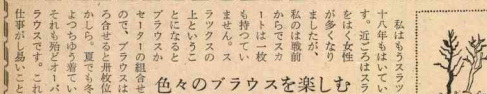 色々のブラウスを楽しむ
私はもうスラツ
十八年もはいてい
す。近ごろはスラ
をはく女性
が多くなり
ましたが、
私のは戦前
からでスカ
ートは一枚
も持つてい
ません。ス
ラックスの
上というこ
とになると
ブラウスか
セーターの組合せ
ので、ブラウスは
ろ合せると卅枚位
かしら。夏でも冬
よつちゆう着てい
それも殆どオーバ
ラウスです。これ
仕事がし易いこと